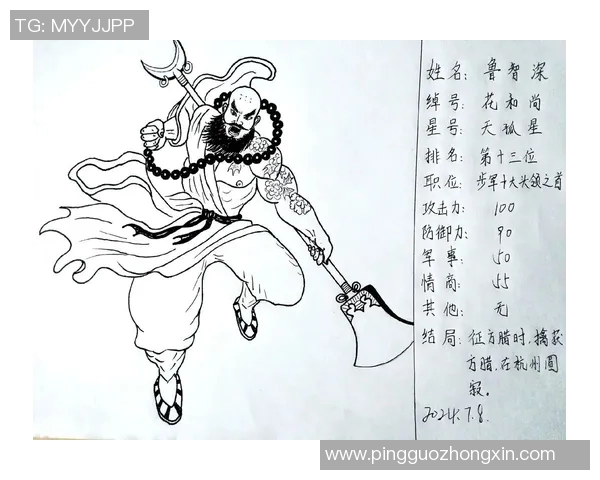 TG: MYYJJPP
姓名: 鲁智深
绰号: 花和尚
星号: 天孤星
排名: 第十三位
职位: 步军十大头领之首
攻击力: 100
防御力: 90
军事: 50
情商: 55
其他: 无
结局: 征方腊时,擒获
方腊.在杭州圆
寂。
2024.7.8.
www.pingguozhongxin.com